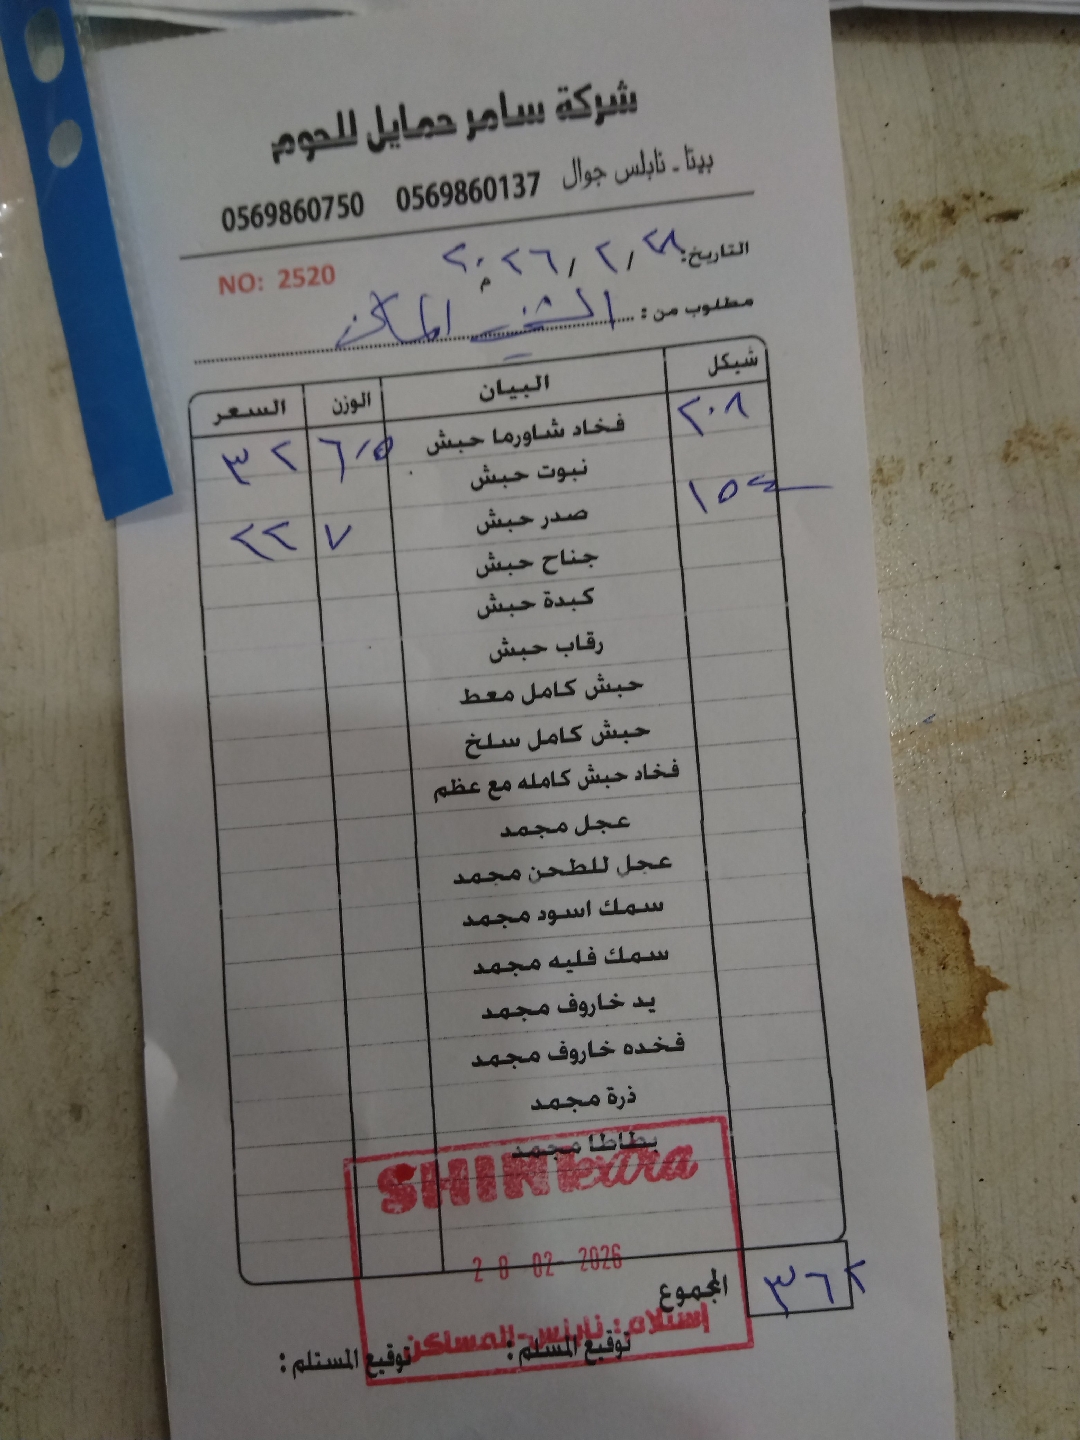 شركة سامر حمايل للحوم
بيتا - نابلس جوال 0569860137 0569860750
التاريخ: ٢٨ / ٢ / ٢٠٢٦ م
NO: 2520
مطلوب من : الشني المساكن
شيكل البيان الوزن السعر
٢٠٨ فخاد شاورما حبش ٦,٥ ٣٢
نبوت حبش
١٥٤ صدر حبش ٧ ٢٢
جناح حبش
كبدة حبش
رقاب حبش
حبش كامل معط
حبش كامل سلخ
فخاد حبش كامله مع عظم
عجل مجمد
عجل للطحن مجمد
سمك اسود مجمد
سمك فليه مجمد
يد خاروف مجمد
فخده خاروف مجمد
ذرة مجمد
بطاطا مجمد
SHINI extra
28-02-2026
المجموع ٣٦٢
إستلام: نابلس-المساكن
توقيع المسلم : توقيع المستلم :